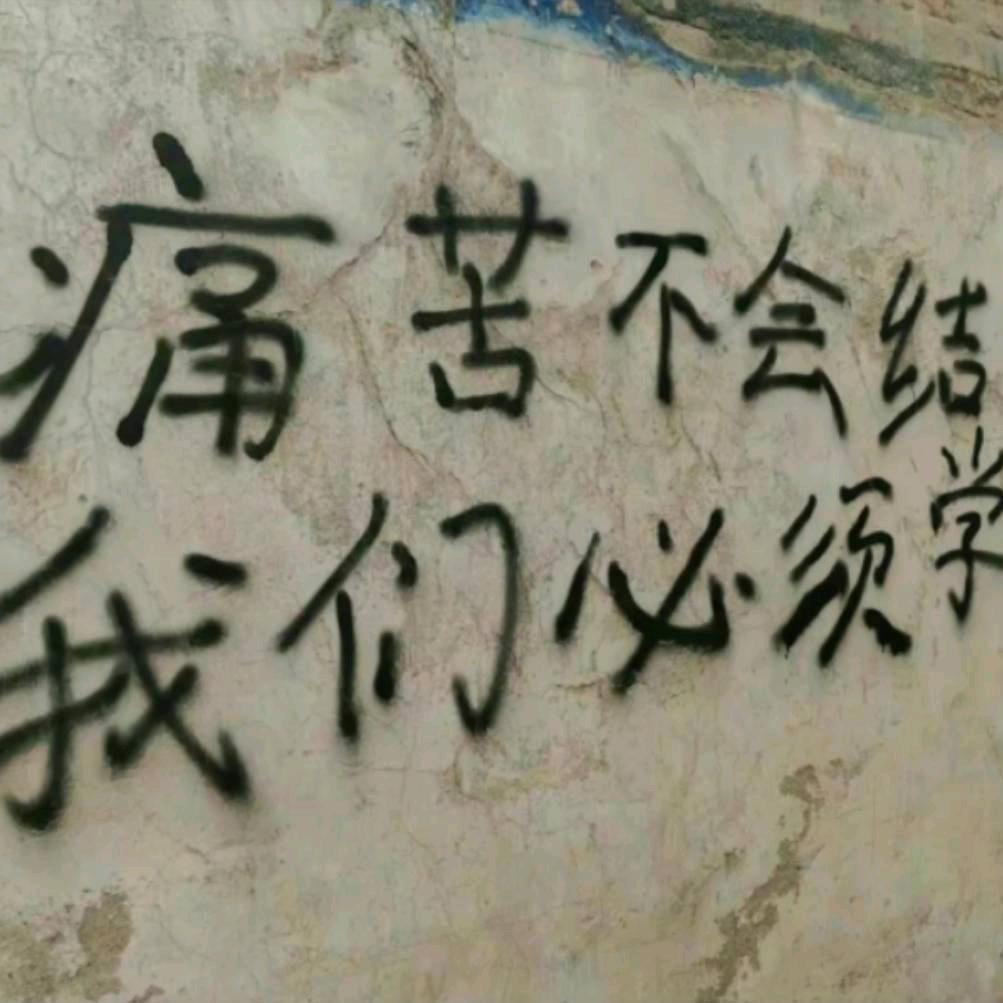 痛苦不会结
我们必须学